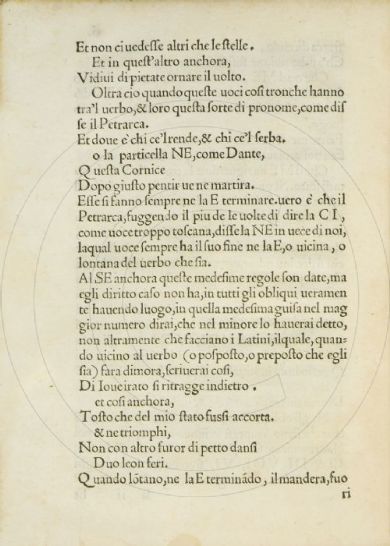 Et non ci uedesse altri che le stelle.
Et in quest'altro anchora,
Vidiui di pietate ornare il uolto.
Oltra cio quando queste uoci così tronche hanno
tra'l uerbo, & loro questa sorte di pronome, come dis
se il Petrarca.
Et doue è chi ce'l rende, & chi ce'l serba.
o la particella NE, come Dante,
Questa Cornice
Dopo giusto pentir ue ne martira.
Esse si fanno sempre ne la E terminare. uero è che il
Petrarca, fuggendo il piu de le uolte di dire la CI,
come uoce troppo toscana, disse la NE in uece di noi,
laqual uoce sempre ha il suo fine ne la E, o uicina, o
lontana del uerbo che sia.
Al SE anchora queste medesime regole son date, ma
egli diritto caso non ha, in tutti gli obliqui ueramen
te hauendo luogo, in quella medesima guisa nel mag
gior numero dirai, che nel minore lo hauerai detto,
non altramente che facciano i Latini, ilquale, quan-
do uicino al uerbo (o posposto, o preposto che egli
sia) fara dimora, scriuerai così,
Di Ioue irato si ritragge indietro.
et così anchora,
Tosto che del mio stato fussi accorta.
& ne triomphi,
Non con altro furor di petto dansi
Duo leon feri.
Quando lōtano, ne la E terminādo, il mandera, fuo
ri